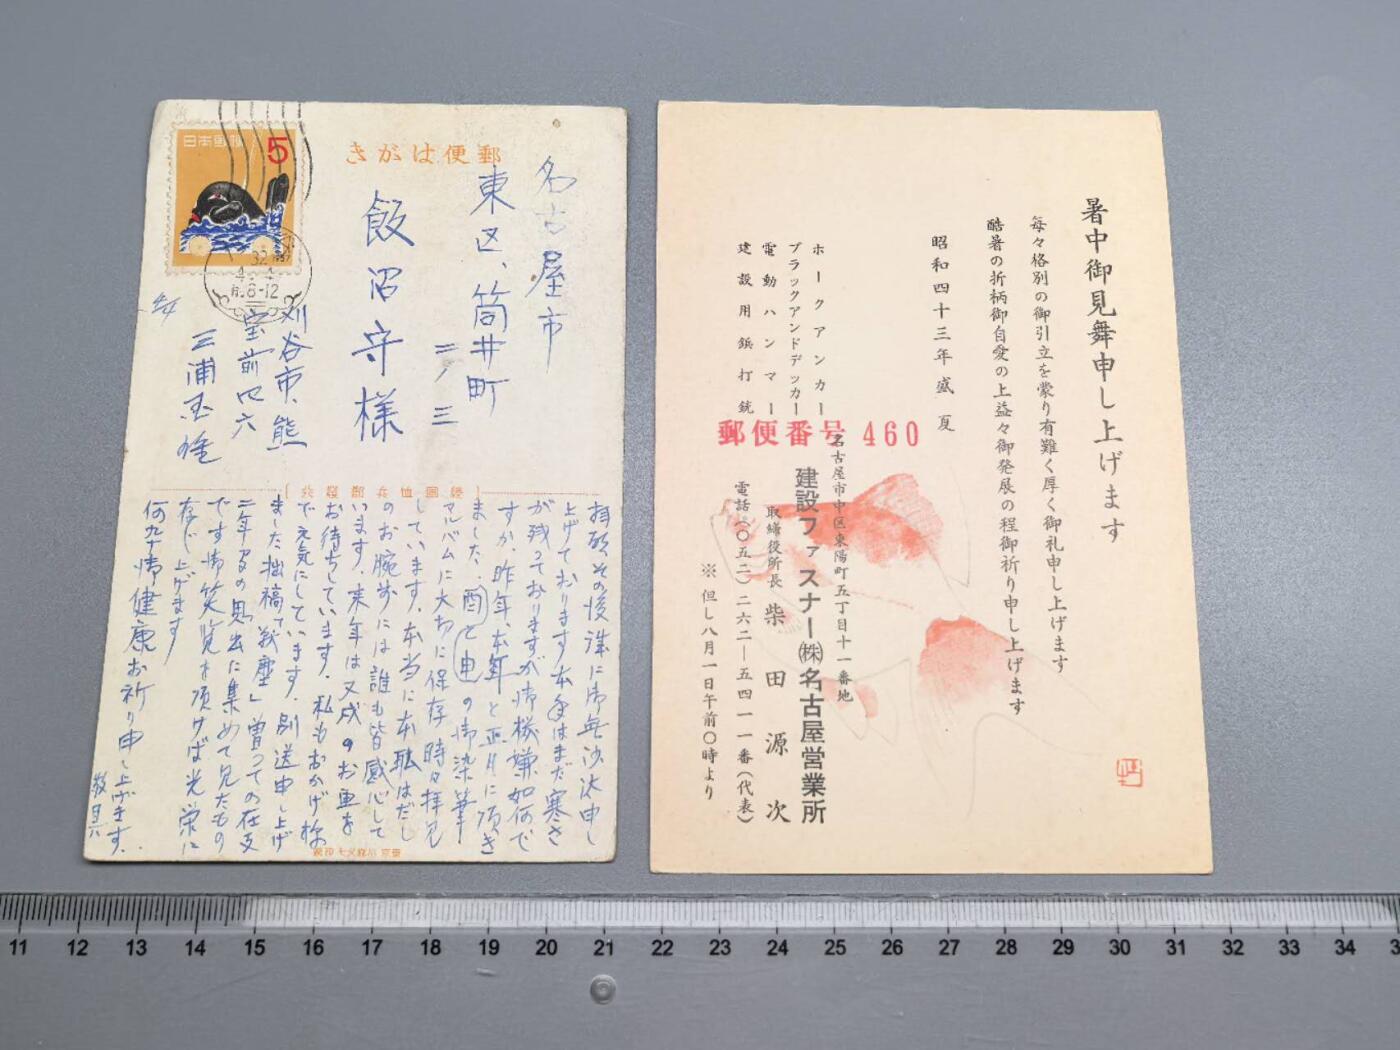 日本郵便
5
32
6-12
郵便はがき
名古屋市
東区、筒井町
二ノ三
飯沼守様
刈谷市、熊
室前四六
三浦
帝國軍人
拝啓その後誠に御無沙汰申し
上げております本年はまだ寒さ
が残っておりますが御機嫌如何で
すか、昨年、本年と正月に頂き
ました、酉と申の御染筆
アルバムに大切に保存時々拝見
しています、本当に本職はだし
のお腕前には誰も皆感心して
います、来年は又戌のお画を
お待ちしています、私もおかげ様
で元気にしています、別送申し上げ
ました拙稿「戦塵」曽っての在支
二年の思出に集めて見たもの
です御笑覧を頂けば光栄に
存じ上げます
何卒御健康お祈り申し上げます、
敬具
暑中御見舞申し上げます
毎々格別の御引立を蒙り有難く厚く御礼申し上げます
酷暑の折柄御自愛の上益々御発展の程御祈り申し上げます
昭和四十三年盛夏
ホークアンカー
ブラックアンドデッカー
電動ハンマー
建設用鋲打銃
郵便番号 460
名古屋市中区東陽町五丁目十一番地
建設ファスナー㈱名古屋営業所
取締役所長 柴田源次
電話(〇五二)二六二―五四一一番(代表)
※但し八月一日午前〇時より
11 12 13 14 15 16 17 18 19 20 21 22 23 24 25 26 27 28 29 30 31 32 33 34